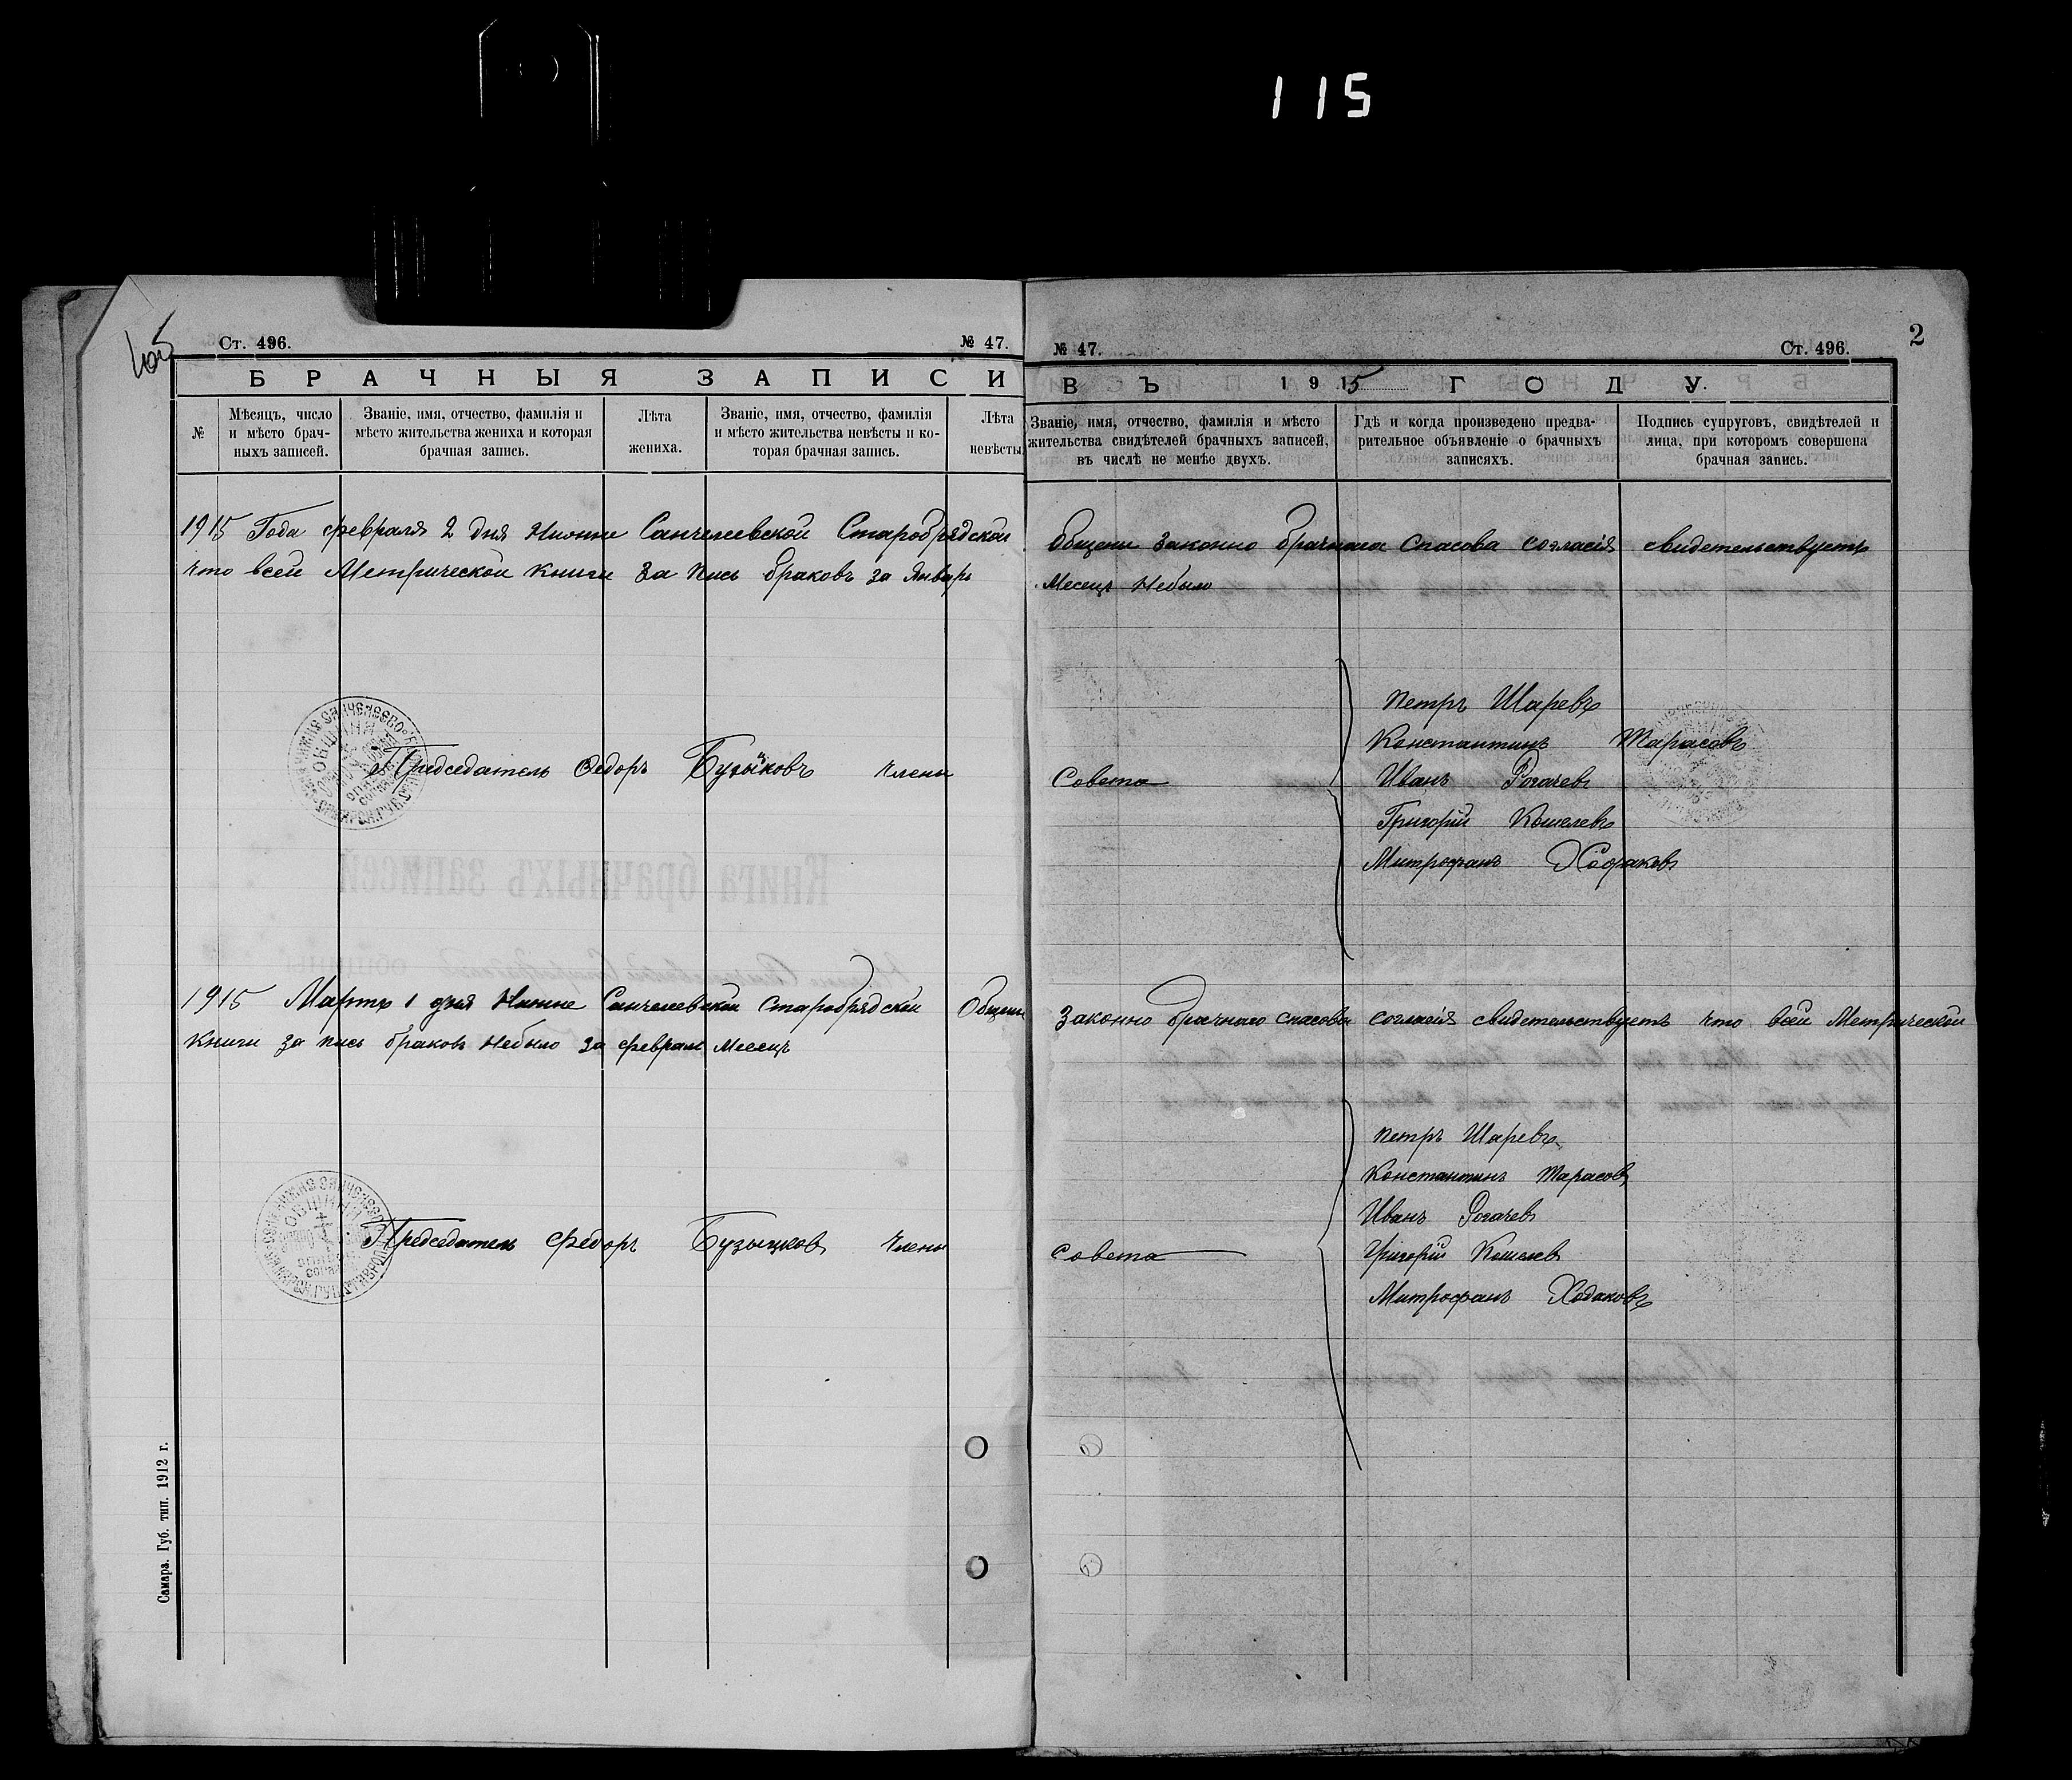 115
105
Ст. 496.
№ 47.
№ 47.
Ст. 496.
2
БРАЧНЫЯ ЗАПИСИ
ВЪ 1915 ГОДУ.
№
Мѣсяцъ, число и мѣсто брач-
ныхъ записей.
Званіе, имя, отчество, фамилія и
мѣсто жительства жениха и которая
брачная запись.
Лѣта
жениха.
Званіе, имя, отчество, фамилія
и мѣсто жительства невѣсты и ко-
торая брачная запись.
Лѣта
невѣсты.
Званіе, имя, отчество, фамилія и мѣсто
жительства свидѣтелей брачныхъ записей,
въ числѣ не менѣе двухъ.
Гдѣ и когда произведено предва-
рительное объявленіе о брачныхъ
записяхъ.
Подпись супруговъ, свидѣтелей и
лица, при которомъ совершена
брачная запись.
1915 Года февраля 2 дня Нижне Санчелеевской Старобрядской Общени Законно брачнаго Спасова согласія свидетельствуетъ
что всей Метрической книги за пись браковъ за Январь Месецъ Небыло
Петръ Шаревъ
Константинъ Тарасовъ
Председатель Ѳедоръ Бузыковъ члены Совета Иванъ Рогачевъ
Григорій Кошелевъ
Митрофанъ Ходаковъ
1915 Мартъ 1 дня Нижне Санчелеевской Старобрядской Общени Законно брачнаго спасова согласія свидетельствуетъ что всей Метрической
Книги за пись браковъ Небыло за феврал Месецъ
Петръ Шаревъ
Константинъ Тарасовъ
Иванъ Рогачевъ
Председатель Федоръ члены Совета Григорій Кошелевъ
Митрофанъ Ходаковъ
Самара. Губ. тип. 1912 г.